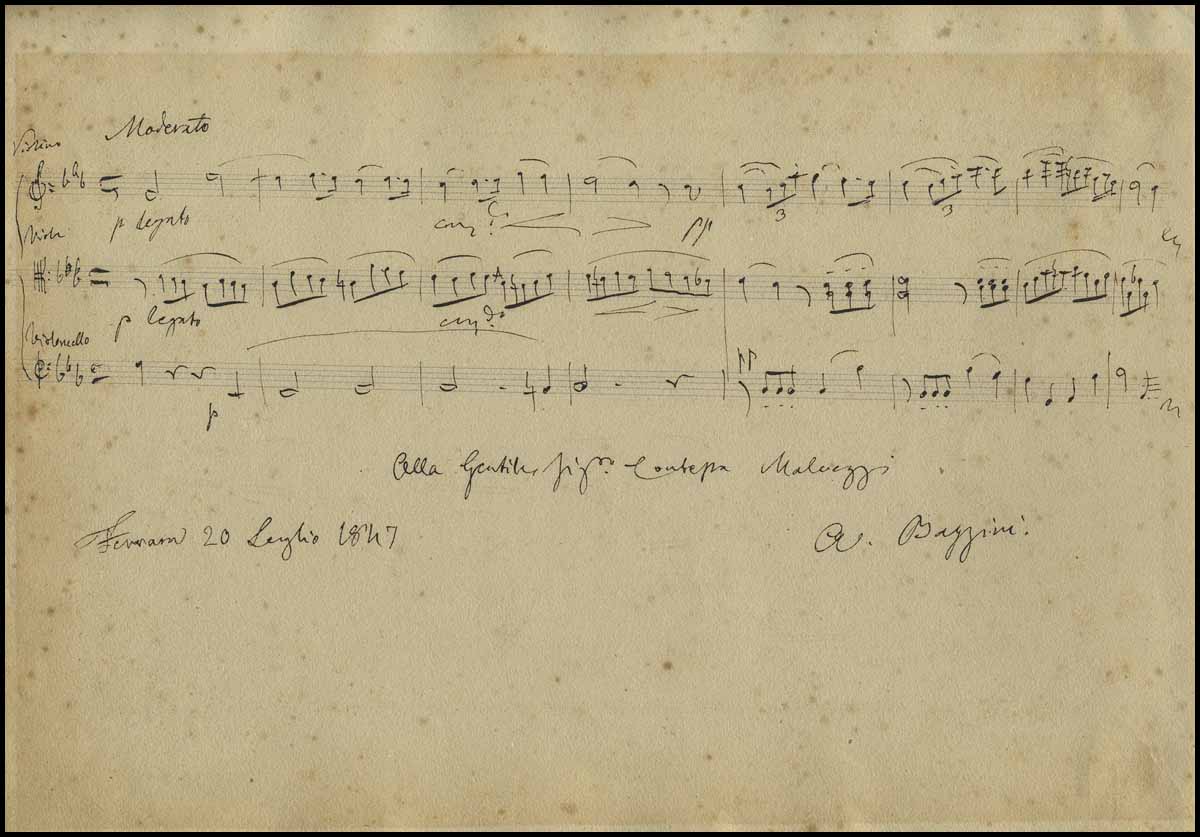 Moderato
Violino
p legato
3
3
pp
Viola
p legato
Violoncello
p
Alla Gentile Sigra. Contessa Malvezzi
Ferrara 20 Luglio 1847
A. Bazzini.